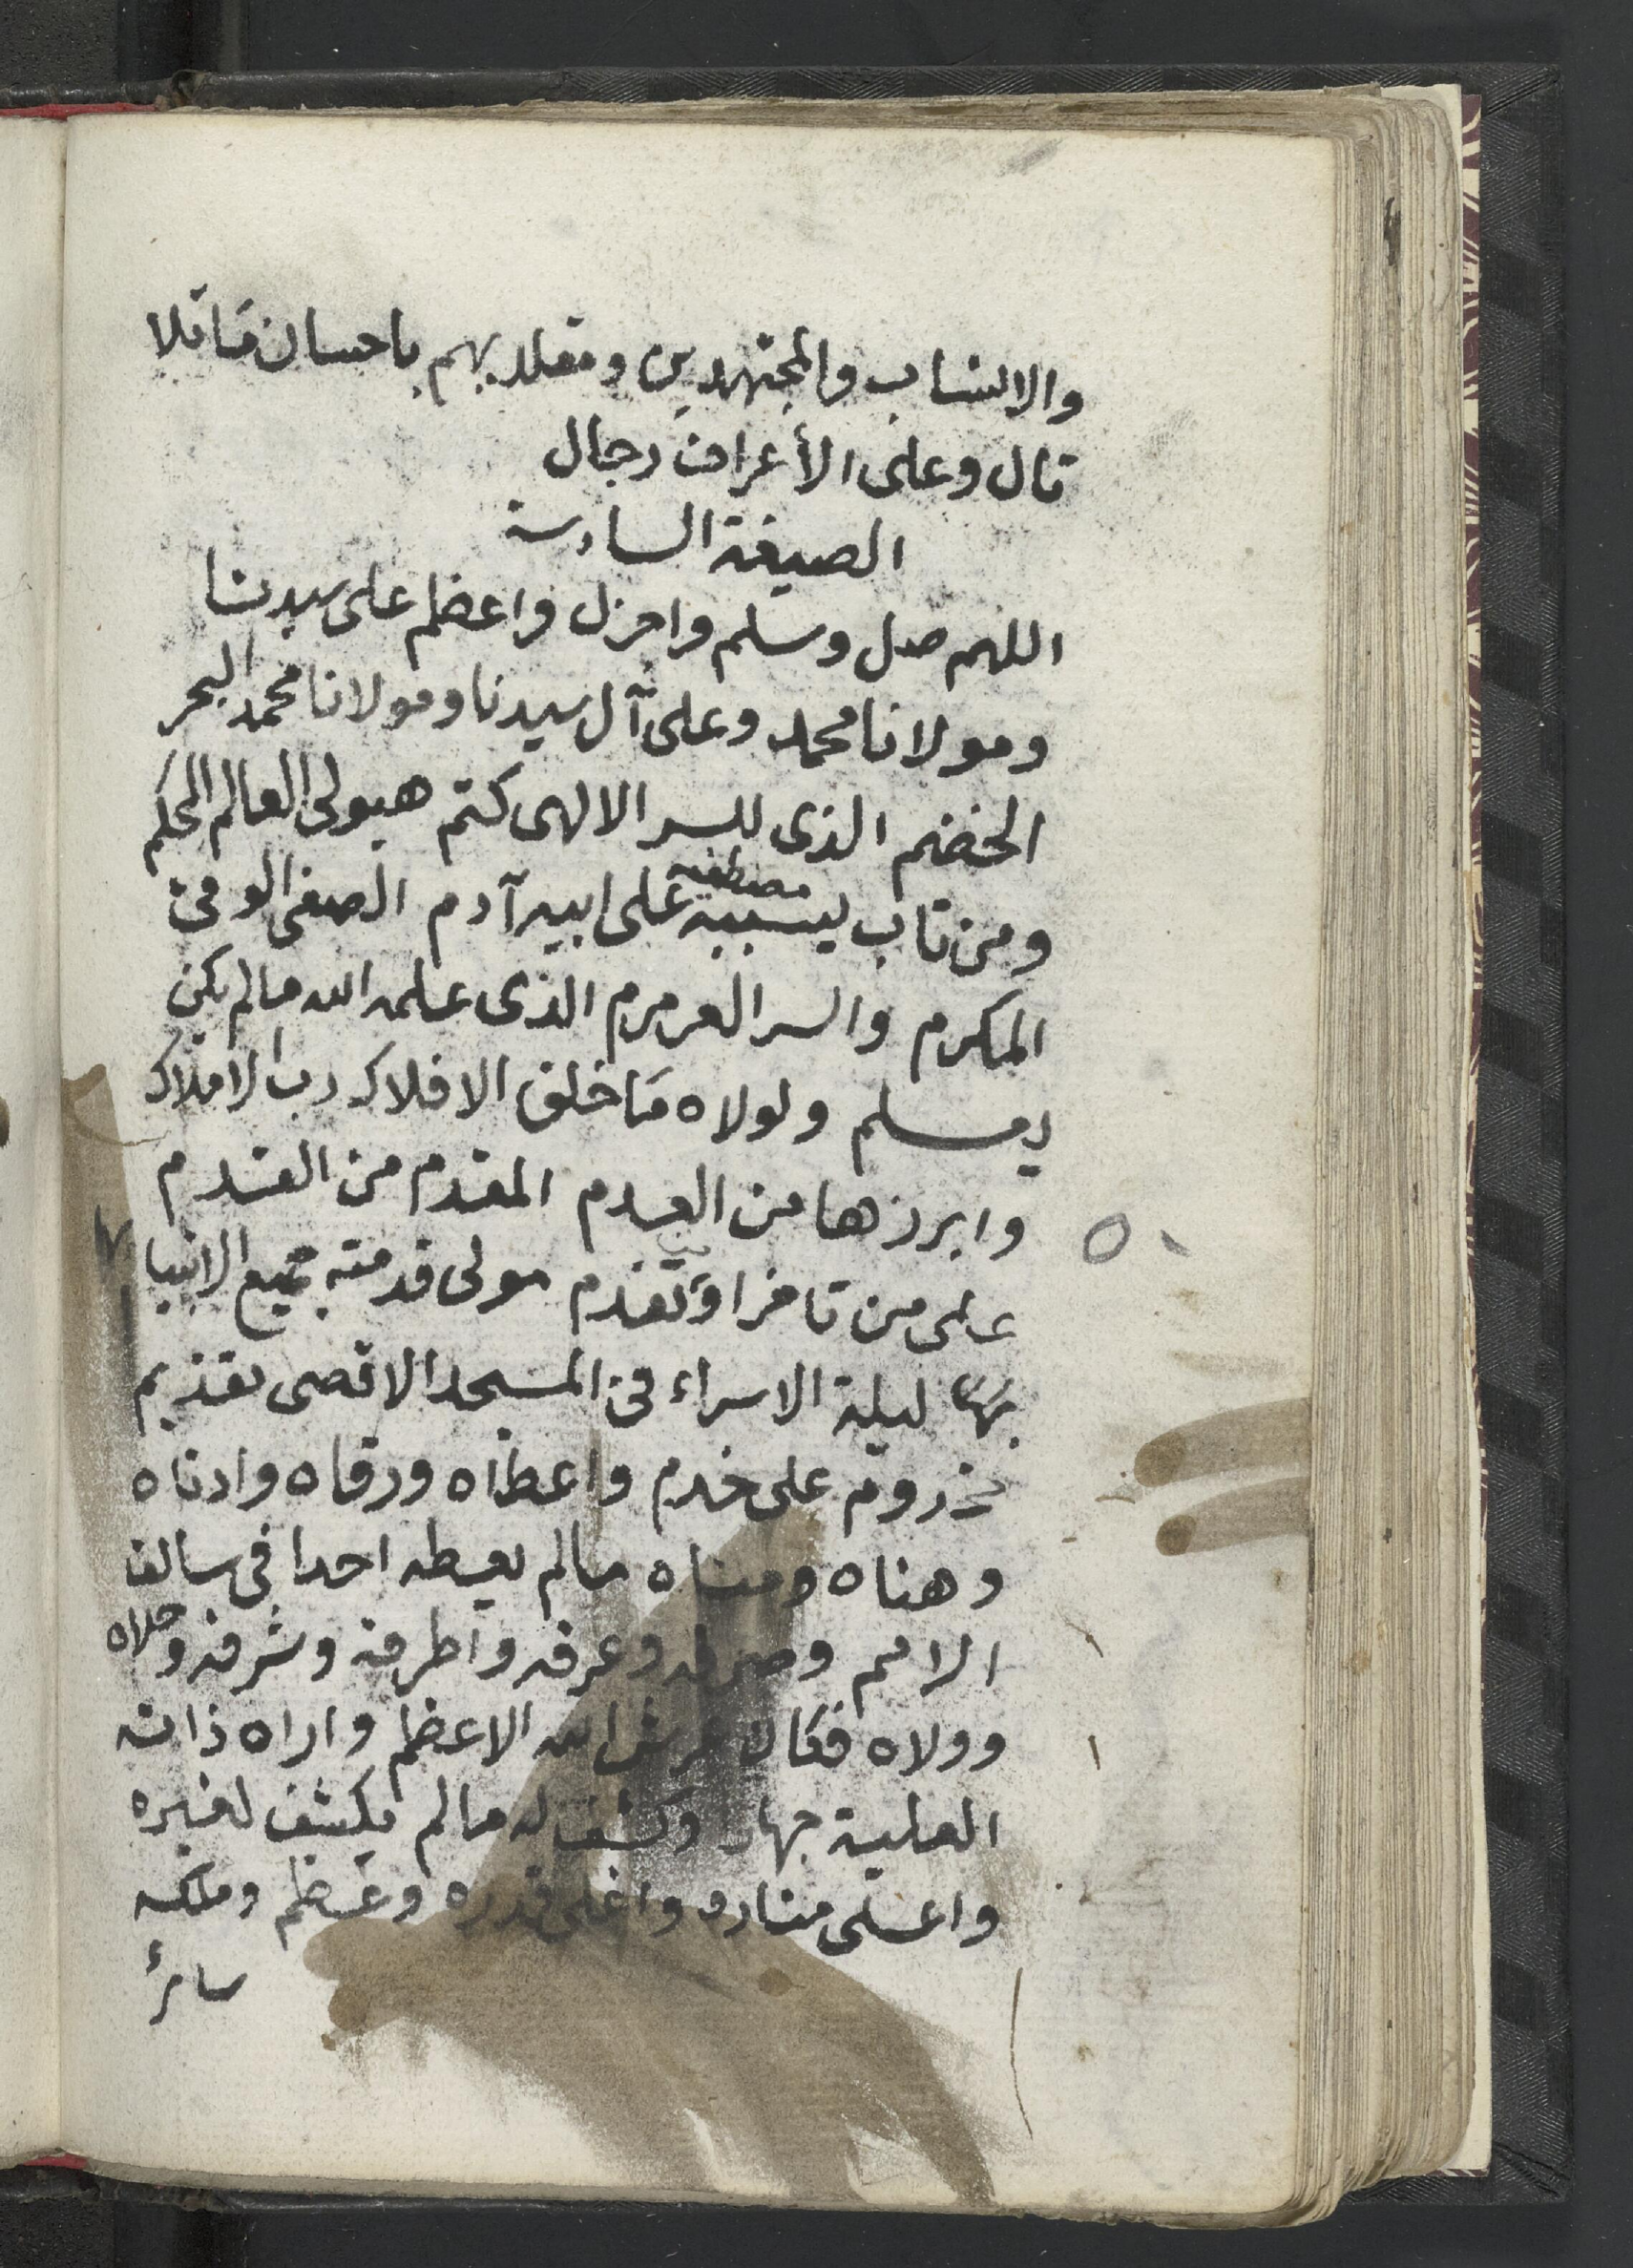 والانساب والمجتهدين ومقلديهم باحسان ما تلا
تال وعلى الأعراف رجال
الصيغة السادسة
اللهم صل وسلم واجزل واعظم على سيدنا
ومولانا محمد وعلى آل سيدنا ومولانا محمد البحر
الخضم الذى للسر الالهى كتم هيولى العالم المحكم
ومن تاب بسببه مصطفيه على ابيه آدم الصفى الوفى
المكرم والسر العرمرم الذى علمه الله مالم يكن
يعلم ولولاه ما خلق الافلاك رب الاملاك
وابرزها من العدم المقدم من القدم
على من تاخر او تقدم مولى قدمته جميع الانبيا
بها ليلة الاسراء فى المسجد الاقصى تقديم
مخدوم على خدم واعطاه ورقاه وادناه
وهناه ومناه مالم يعطه احدا فى سالف
الامم وصرفه وعرفه واطرفه وشرفه وحلاه
وولاه فكان عرش الله الاعظم واراه ذاته
العلية جهار وكشف له مالم يكشف لغيره
واعلى مناره واغلى قدره وعظم وملكه
سائر
٥٠